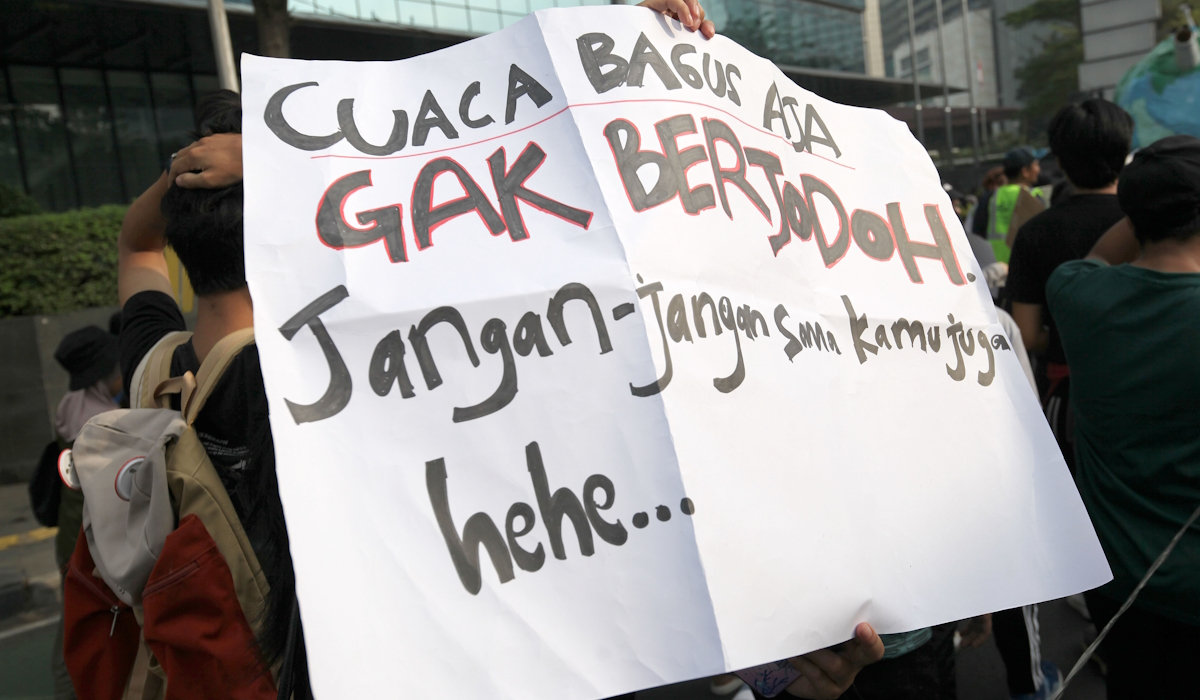 CUACA BAGUS AJA
GAK BERJODOH.
Jangan-jangan sama kamu juga
hehe...